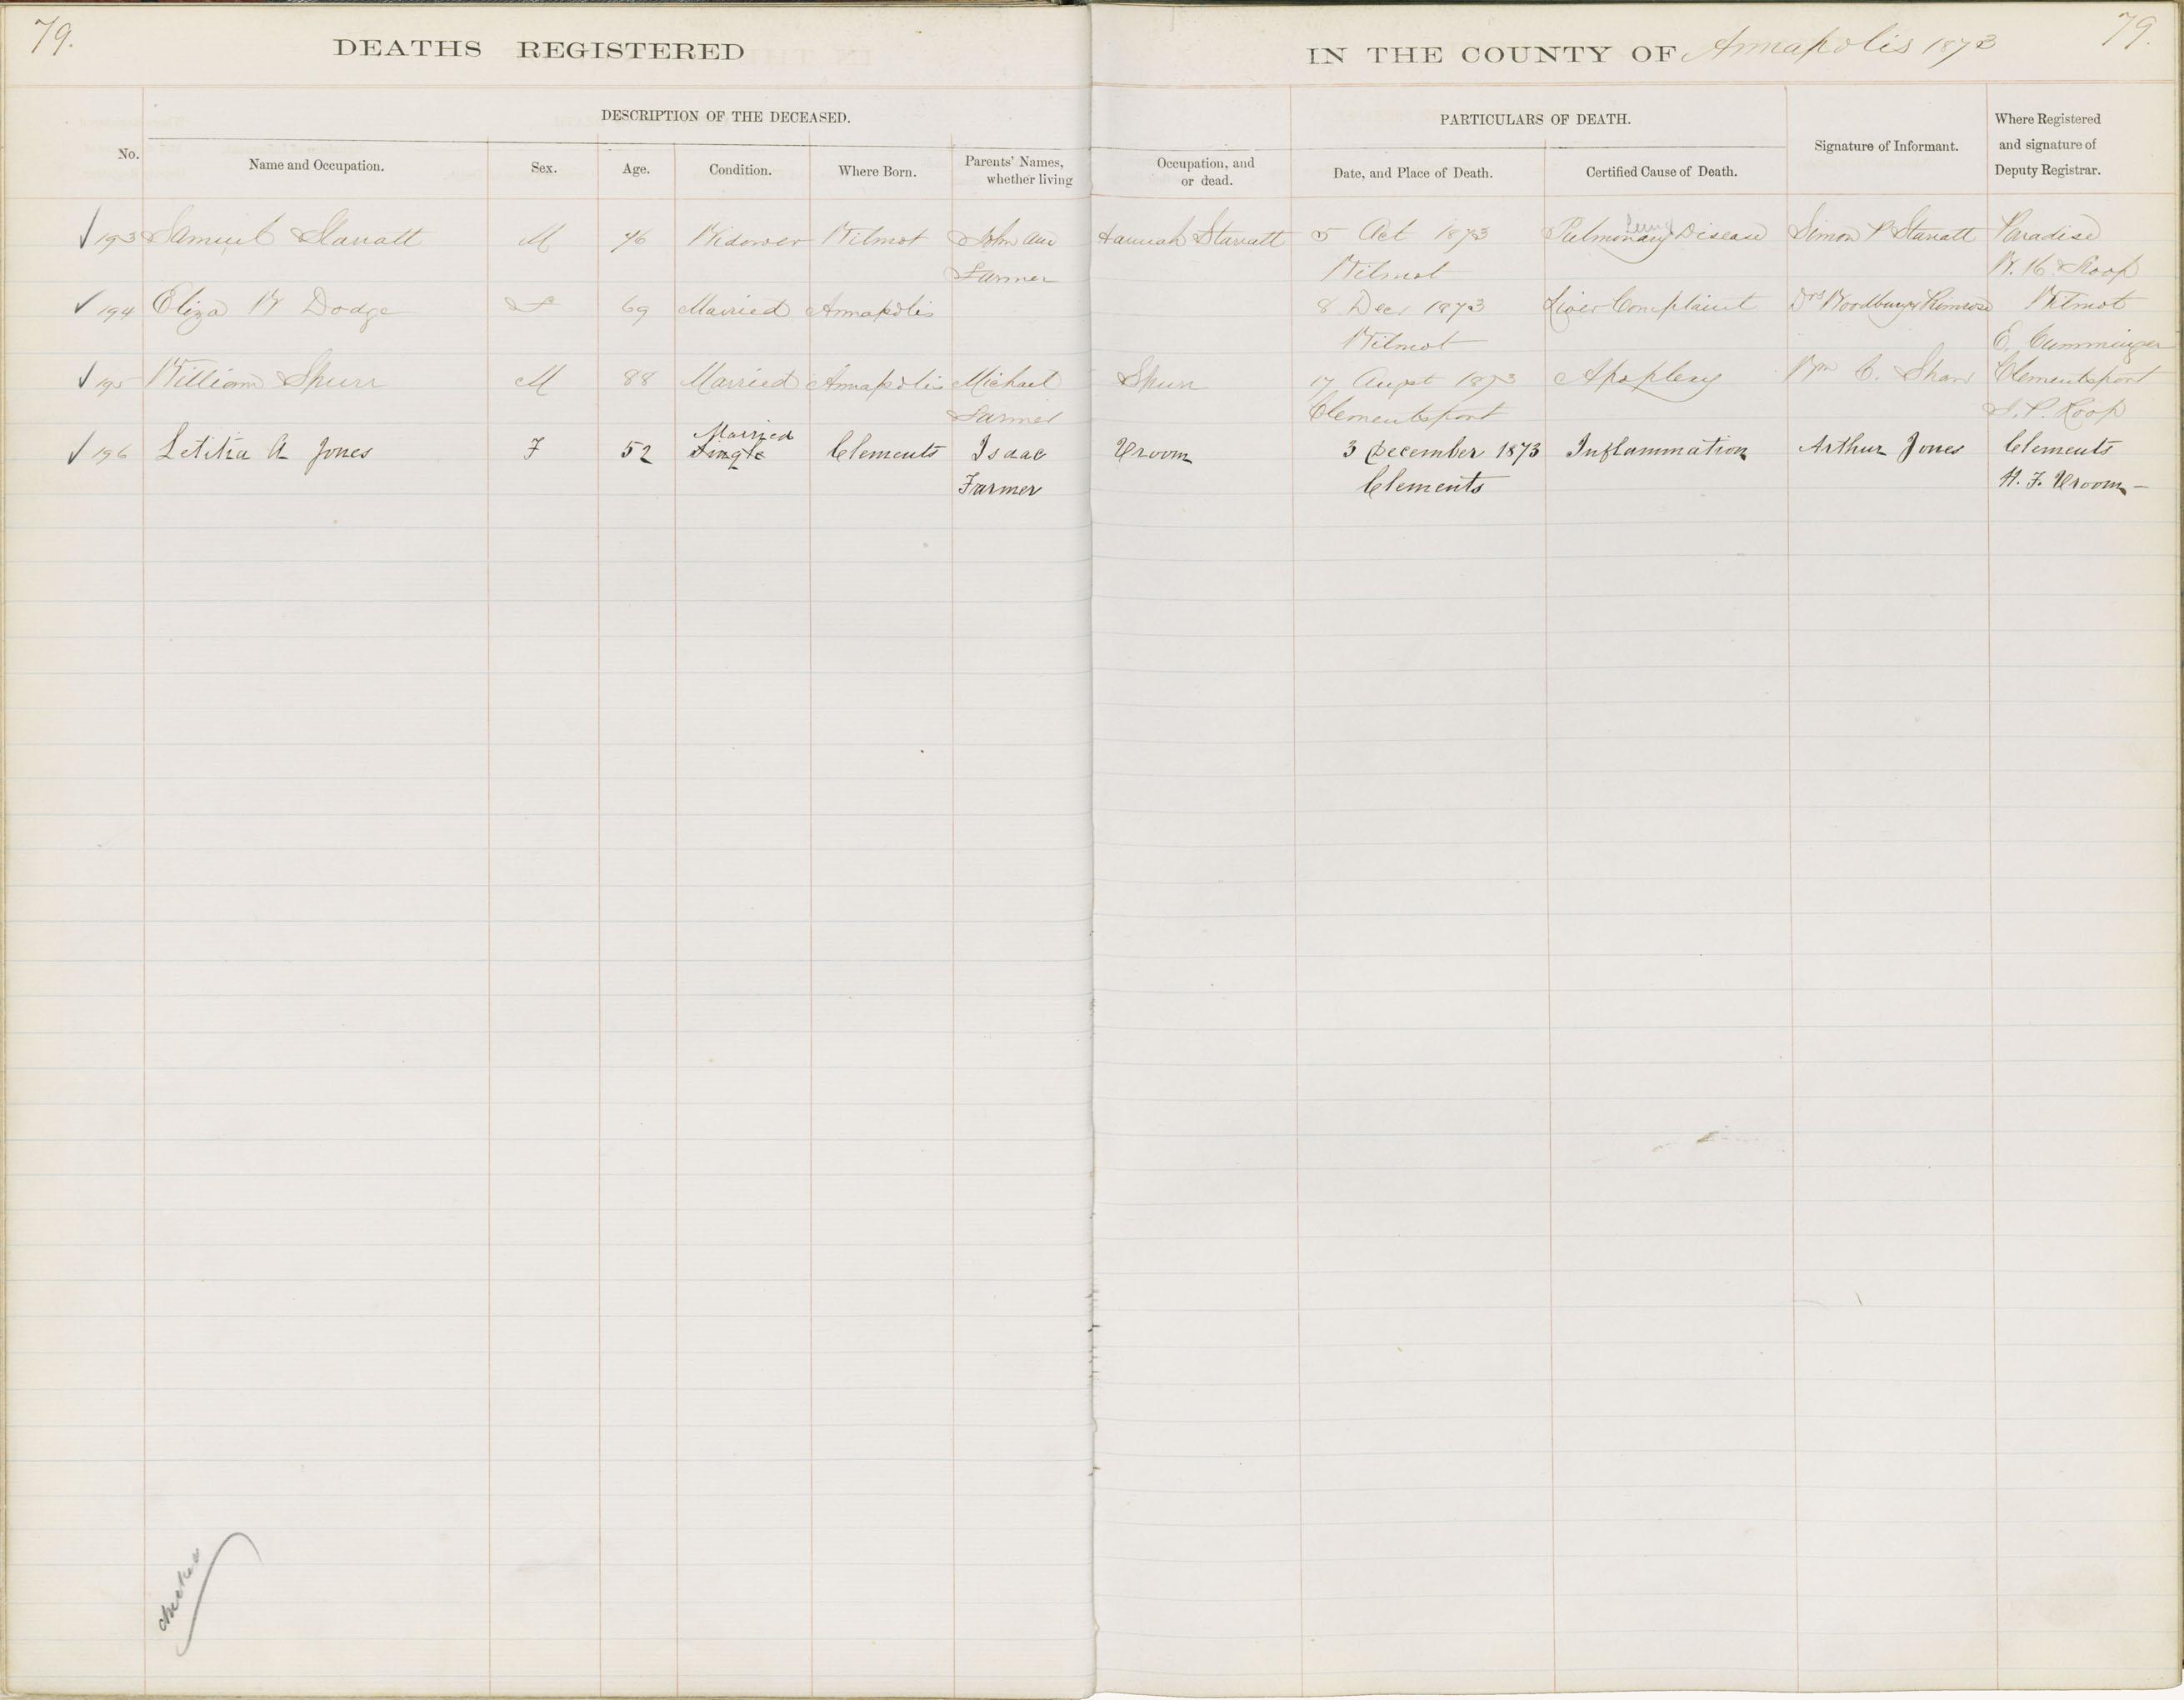 79.
DEATHS REGISTERED
IN THE COUNTY OF Annapolis 1873
79.
DESCRIPTION OF THE DECEASED.
PARTICULARS OF DEATH.
No.
Name and Occupation.
Sex.
Age.
Condition.
Where Born.
Parents' Names, whether living
Occupation, and or dead.
Date, and Place of Death.
Certified Cause of Death.
Signature of Informant.
Where Registered
and signature of
Deputy Registrar.
Lung
193 Samuel Starratt M 76 Widower Wilmot John and Hannah Starratt 5 Oct 1873 Pulmonary Disease Simon P Starratt Paradise
Farmer Wilmot
194 Eliza W Dodge F 69 Married Annapolis 8 Decr 1873 Liver Complaint Drs Woodbury Wilmot
Wilmot E. Cumminger
195 William Spurr M 88 Married Annapolis Michael Spurr 17 Augst 1873 Apoplexy Wm C. Shaw Clementsport
Farmer Clementsport Roop
Married
196 Letitia A Jones F 52 Single Clements Isaac Vroom 3 December 1873 Inflammation Arthur Jones Clements
Farmer Clements H. F. Vroom -
checked